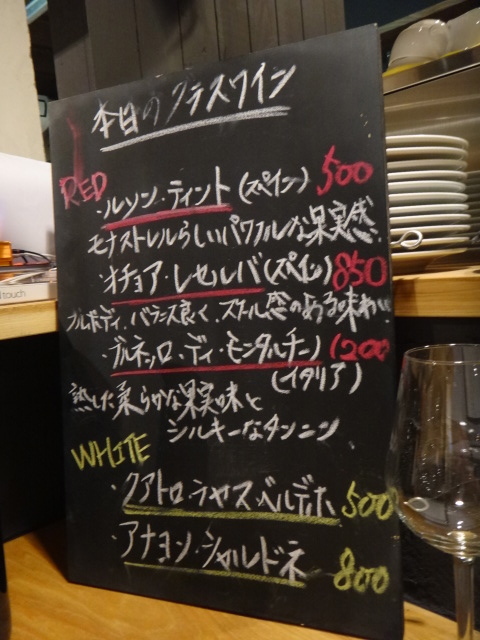 本日のグラスワイン
RED
・ルソン・ティント(スペイン) 500
モナストレルらしいパワフルな果実感.
・オチョア・レセルバ(スペイン) 850
フルボディ、バランス良く、スケール感のある味わい
・ブルネッロ・ディ・モンタルチーノ 1200
(イタリア)
熟した柔らかな果実味と
シルキーなタンニン
WHITE
・クアトロ・ラヤス ベルデホ 500
・アナヨン・シャルドネ 800
touch